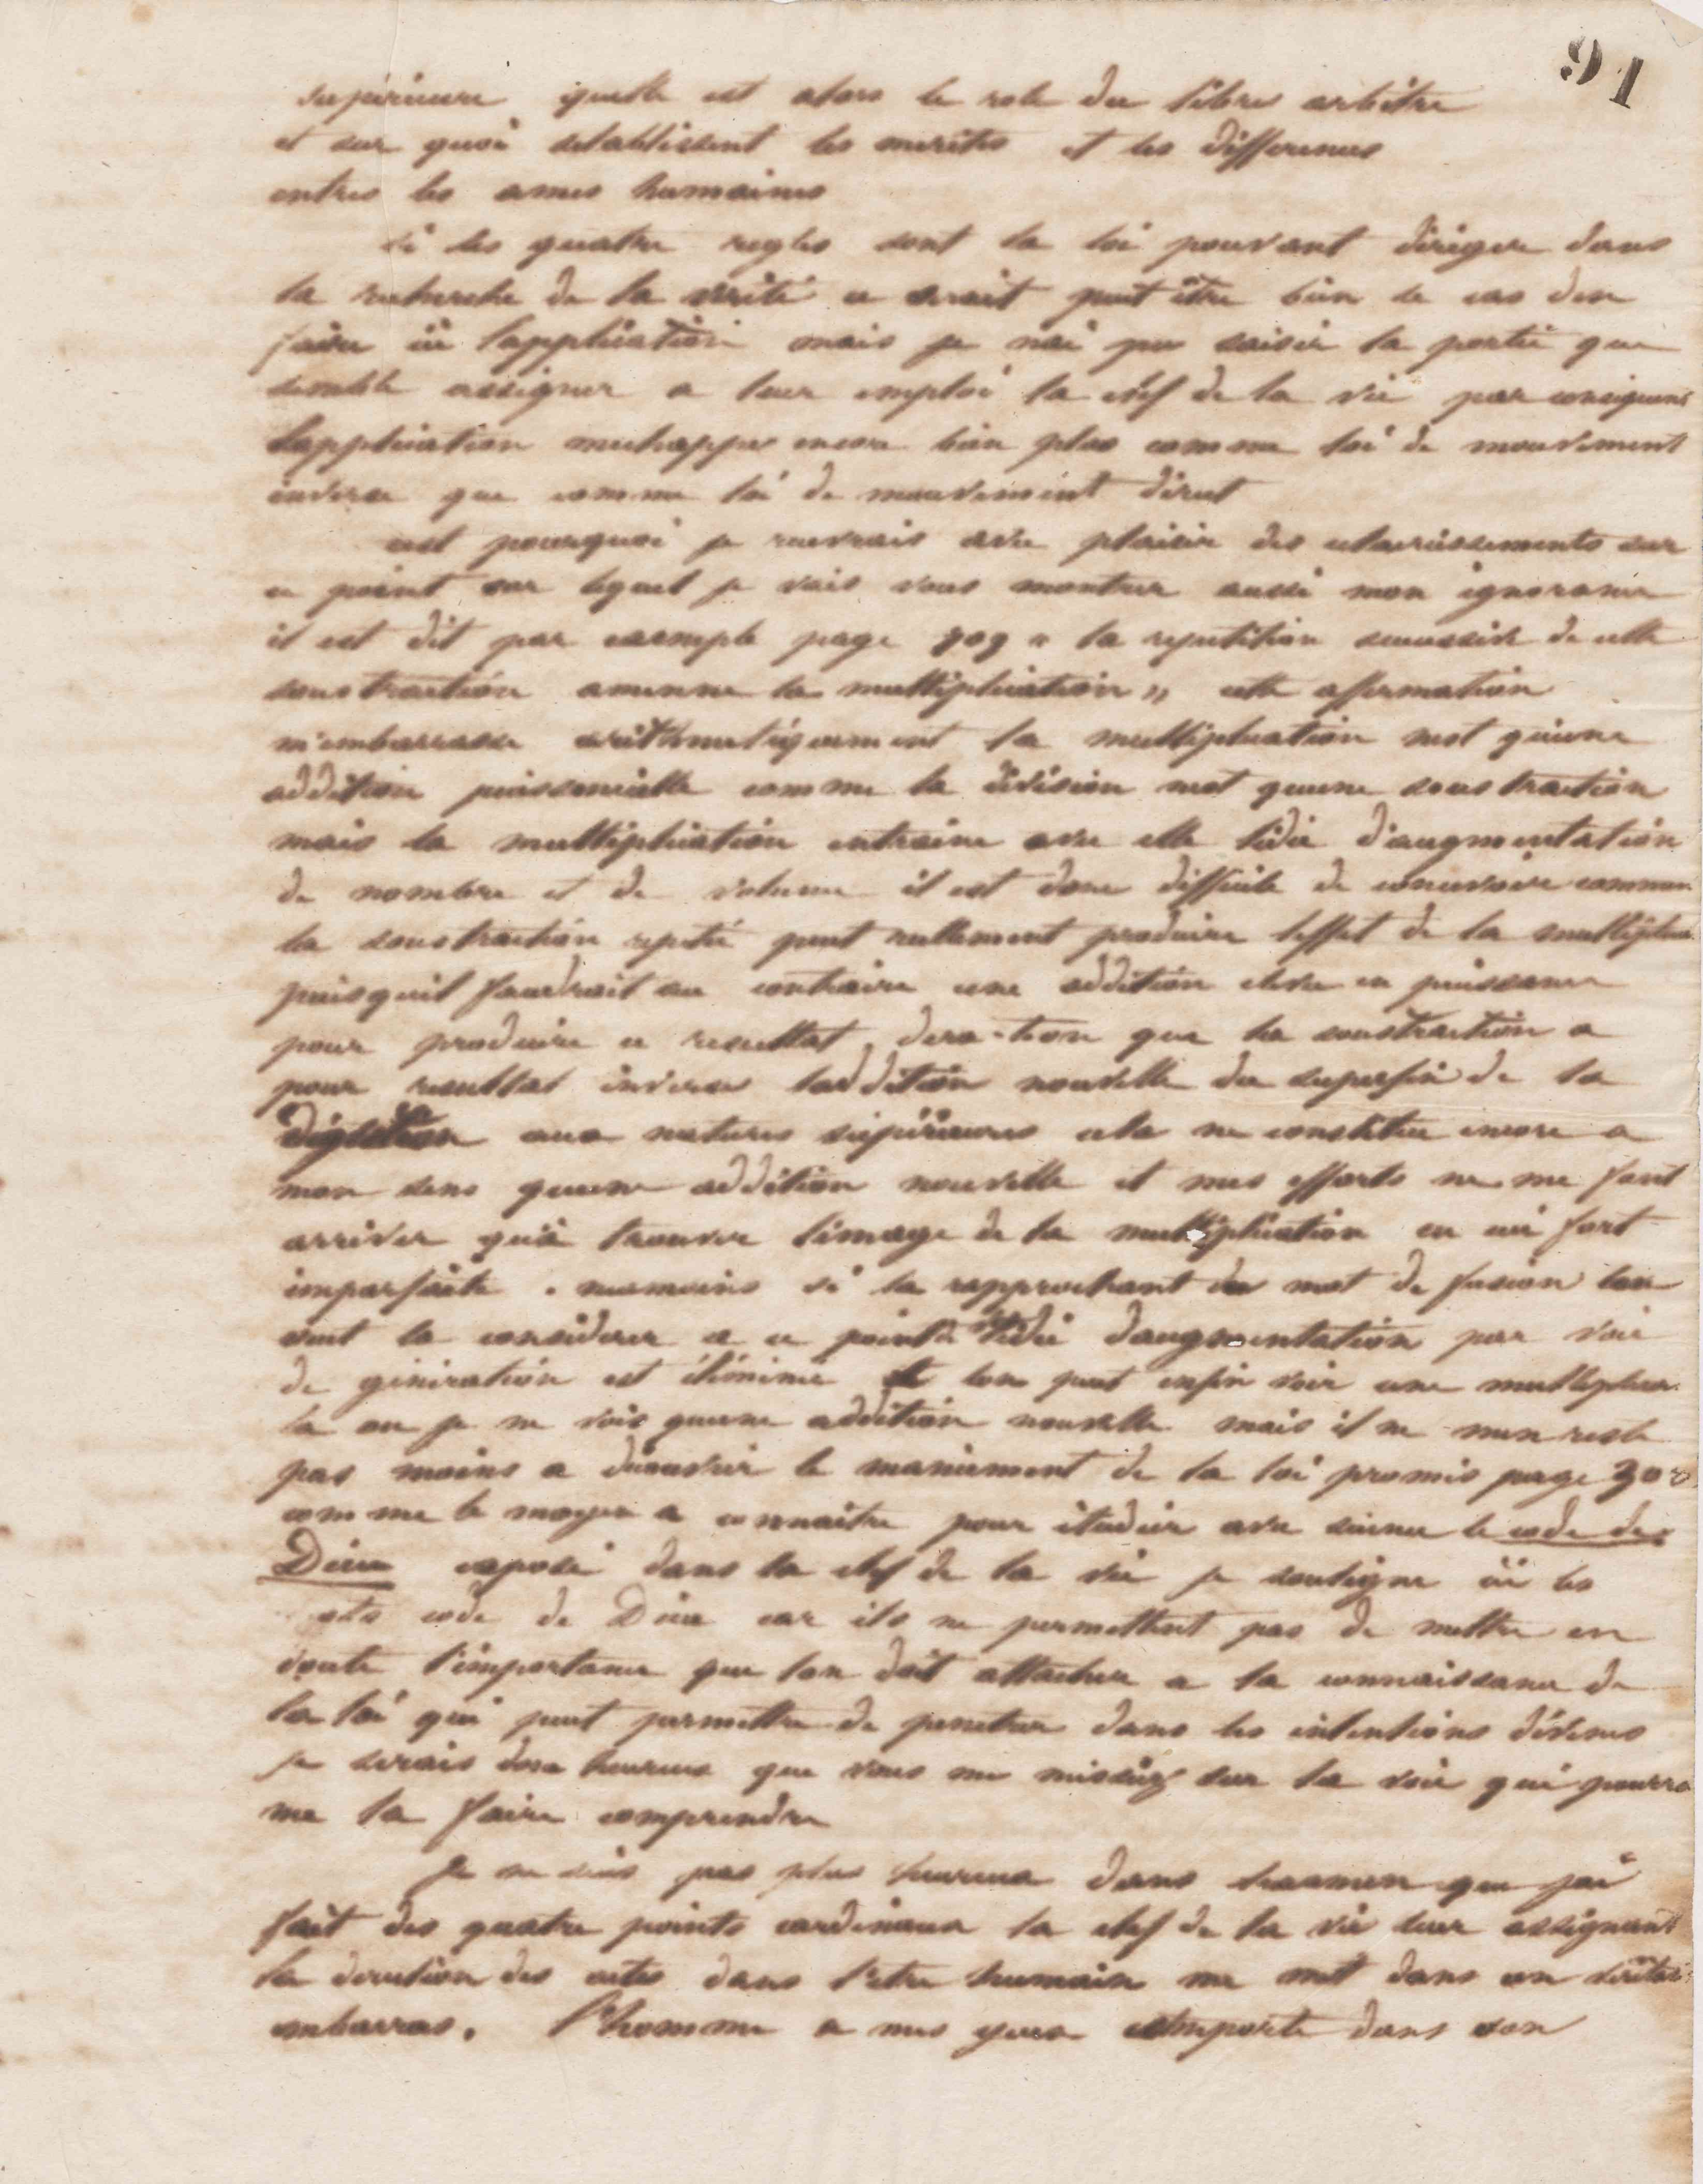 91
superieure quelle est alors le role du libre arbitre
et sur quoi setablissent les merites et les differences
entres les ames humaines
si les quatre regles sont la loi pouvant diriger dans
la recherche de la verité ce serait peut être bien le cas den
faire ici lapplication mais je nai pu saisir la portée que
semble assigner a leur emploi la clef de la vie par consequent
lapplication mechappe encore bien plus comme loi de mouvement
inverse que comme loi de mouvement direct
cest pourquoi je recevrais avec plaisir des eclaircissements sur
ce point sur lequel je vais vous montrer aussi mon ignorance
il est dit par exemple page 709 " la repetition successive de cette
soustraction amenne la multiplication " cette affirmation
m'embarrasse arithmetiquement la multiplication nest quune
addition puissancielle comme la division nest quune soustraction
mais la multiplication entraine avec elle lidée d'augmentation
de nombre et de volume il est donc difficile de concevoir comment
la soustraction repetée peut nullement produire leffet de la
puisquil faudrait au contraire une addition elevée en puissance
pour produire ce resultat, dira-t-on que la soustraction a
pour resultat inverse laddition nouvelle du superfin de la
digestion aux natures supérieures cela ne constitue encore a
mon sens quune addition nouvelle et mes efforts ne me font
arriver quà trouver limage de la multiplication en ceci fort
imparfaite. neamoins si la rapprochant du mot de fusion lon
veut la considerer a ce point lidée daugmentation par voie
de génération est éliminée et lon peut enfin voir une
la ou je ne vois quune addition nouvelle mais il ne men reste
pas moins a decouvrir le maniement de la loi promis page
comme le moyen a connaitre pour étudier avec science le code de
Dieu exposé dans la clef de la vie je souligne ici les
mots code de Dieu car ils ne permettent pas de mettre en
doute l'importance que lon doit attacher a la connaissance de
la loi qui peut permettre de penetrer dans les intentions divines
je serais donc heureux que vous me missiez sur la voie qui pourra
me la faire comprendre
Je ne suis pas plus heureux dans lexamen que jai
fait des quatre points cardinaux la clef de la vie leur assignant
la direction des actes dans l'etre humain me met dans un
embarras. l'homme a mes yeux emporte dans son